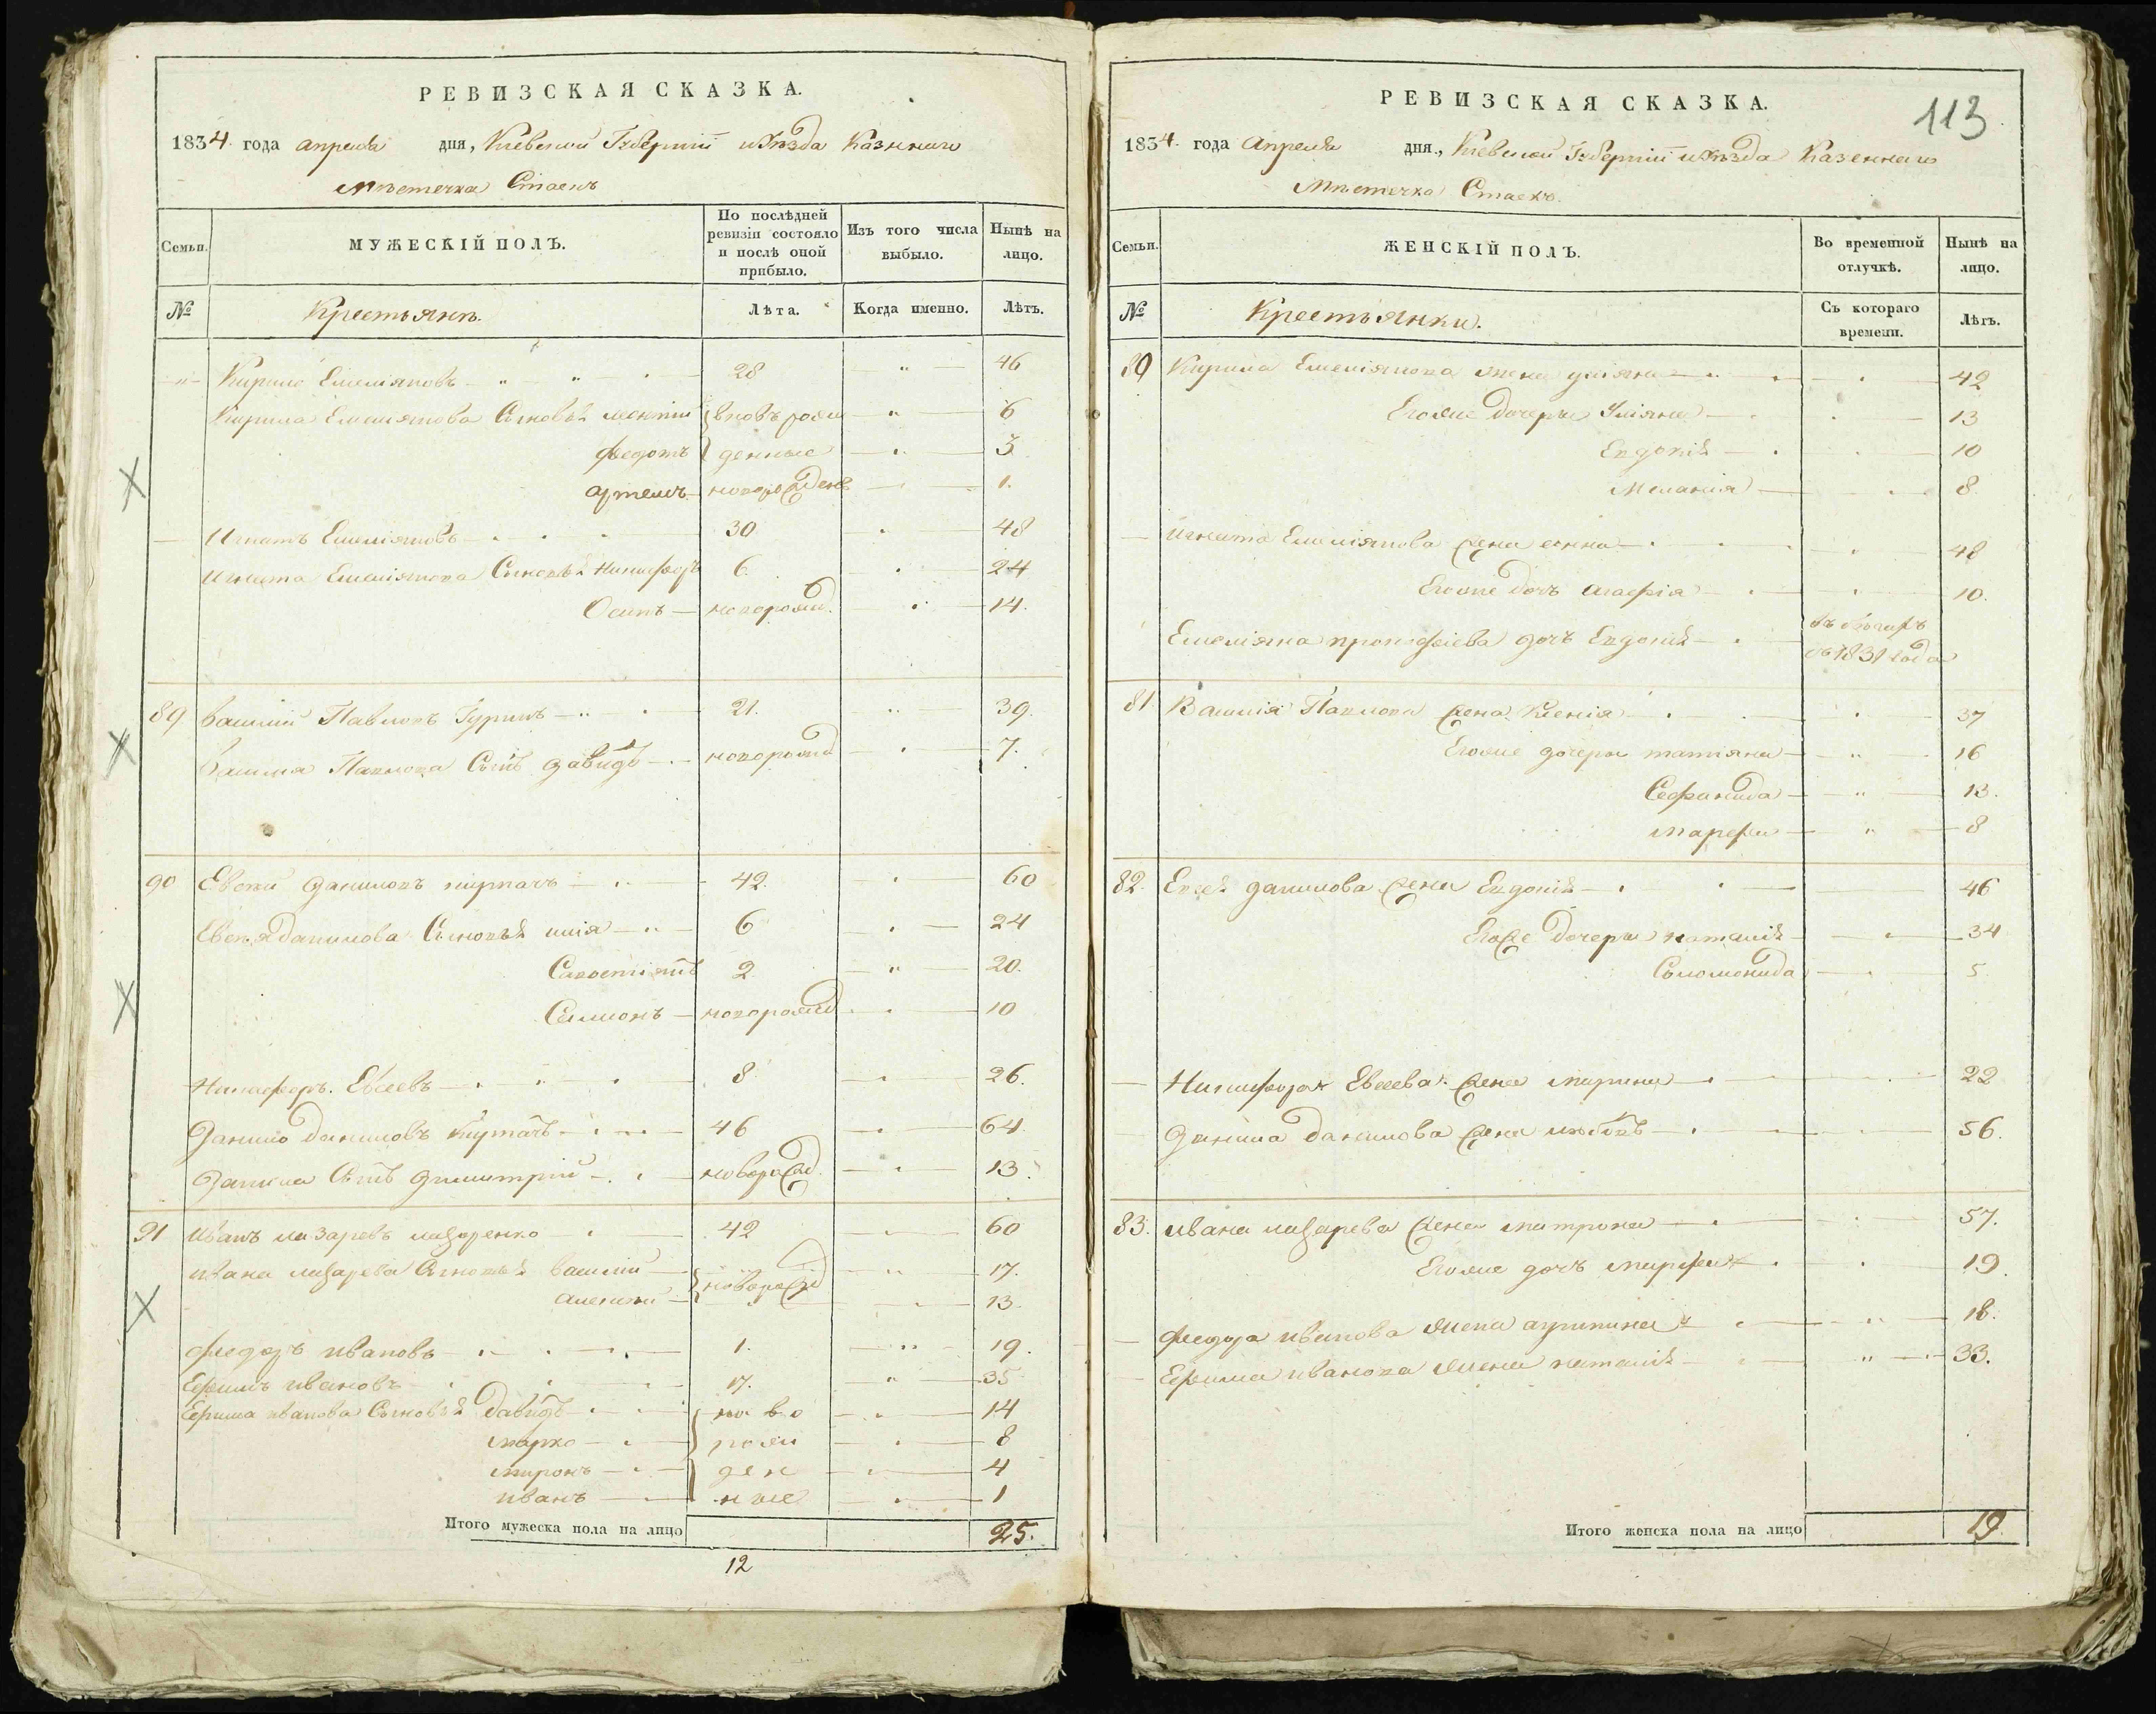 РЕВИЗСКАЯ СКАЗКА.
1834 года апреля дня, Киевской Губернии уѣзда Казеннаго
Мѣстечка Стаекъ
Семьи.
МУЖЕСКІЙ ПОЛЪ.
По послѣдней ревизіи состояло и послѣ оной прибыло.
Изъ того числа выбыло.
Нынѣ на лицо.
№
Крестьянъ.
Лѣта.
Когда именно.
Лѣтъ.
Кирило Емеліяновъ 28 46
Кирила Емеліянова Сыновья леонтій вновь рож 6
Федотъ денные 3
Артемъ новорожденъ 1.
Игнатъ Емеліяновъ 30. 48
Игната Емеліянова Сыновья Никифоръ 6. 24
Осипъ новорожд. 14.
89 Василий Павловъ Гуринъ 21. 39.
Василия Павлова Сынъ давидъ новорожд 7.
90 Евсей даниловъ 42. 60
Евсея данилова Сыновья илія 6 24
Савостіянъ 2 20.
Симионъ новорожд 10
Никифоръ Евсеевъ 8 26.
Данило даниловъ 46 64.
Данила Сынъ димитрій новорожд. 13.
91 Иванъ лазаревъ лазаренко 42 60
Ивана лазарева Сыновья василій новорожд 17.
алексѣй 13.
Федоръ ивановъ 1. 19.
Ефимъ ивановъ 17. 35
Ефима иванова Сыновья давидъ но во 14
марко рож 8
миронъ ден 4
иванъ ные 1
Итого мужеска пола на лицо 25.
12
РЕВИЗСКАЯ СКАЗКА.
113
1834 года Апреля дня, Киевской Губернии уѣзда Казеннаго
Мѣстечка Стаекъ.
Семьи.
ЖЕНСКІЙ ПОЛЪ.
Во временной отлучкѣ.
Нынѣ на лицо.
№
Крестьянки.
Съ котораго времени.
Лѣтъ.
80 Кирила Емеліянова жена уліяна 42
Егоже дочери Уліяна 13
Евдокія 10
Меланія 8
Игната Емеліянова жена анна 48
Егоже дочь агафія 10.
Емеліяна прокофіева дочь Евдокія
съ 1831 года
81. Василія Павлова жена Ксенія 37
Егоже дочери татіяна 16
13.
марфа 8
82. Евсея данилова жена Евдокія 46
Егоже дочери наталія 34
Соломонида 5
Никифора Евсеева жена марина 22
Данила данилова жена любовъ 56.
83. Ивана лазарева жена матрона 57.
Егоже дочь марфа 19.
Федора иванова жена агрипина 18.
Ефима иванова жена наталія 33.
Итого женска пола на лицо 19.